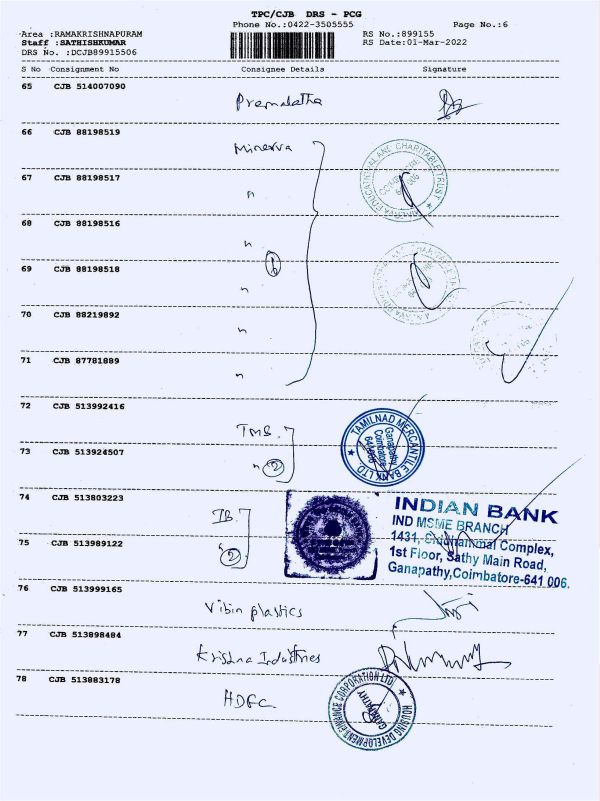 TPC/CJB DRS - PCG
Phone No.:0422-3505555 Page No.:6
Area :RAMAKRISHNAPURAM RS No.:899155
Staff :SATHISHKUMAR RS Date:01-Mar-2022
DRS No. :DCJB89915506
S No Consignment No Consignee Details Signature
65 CJB 514007090 Premalatha
66 CJB 88198519 Minerva
MINERVA EDUCATIONAL AND CHARITABLE TRUST
67 CJB 88198517 "
68 CJB 88198516 "
6
69 CJB 88198518 "
70 CJB 88219892 "
71 CJB 87781889 "
72 CJB 513992416 TMB
TAMILNAD MERCANTILE BANK LTD.
Ganapathy
Coimbatore
641006
73 CJB 513924507 " 2
74 CJB 513803223 IB
INDIAN BANK
IND MSME BRANCH
1431, Sidhammal Complex,
1st Floor, Sathy Main Road,
Ganapathy,Coimbatore-641 006.
75 CJB 513989122 2
76 CJB 513999165 Vibin plastics
77 CJB 513898484 Krishna Industries
78 CJB 513883178 HDFC
HOUSING DEVELOPMENT FINANCE CORPORATION LTD.
GANAPATHY